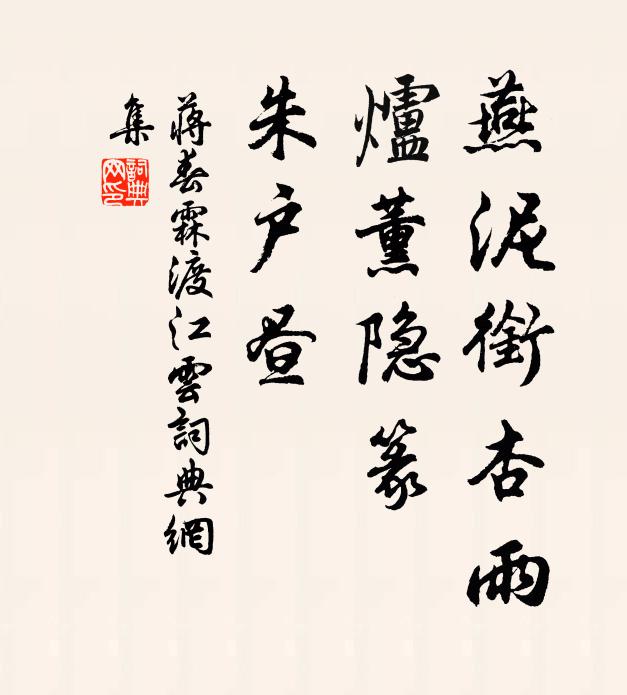 燕泥銜杏雨
爐薰隐篆
朱户昼
蔣春霖渡江雲詞典網
集
詞典
网印